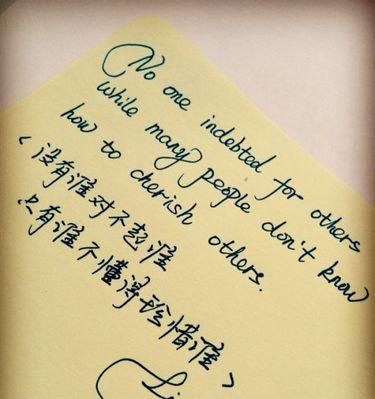 No one indebted for others
while many people don't know
how to cherish others.
<没有谁对不起谁
只有谁不懂得珍惜谁>